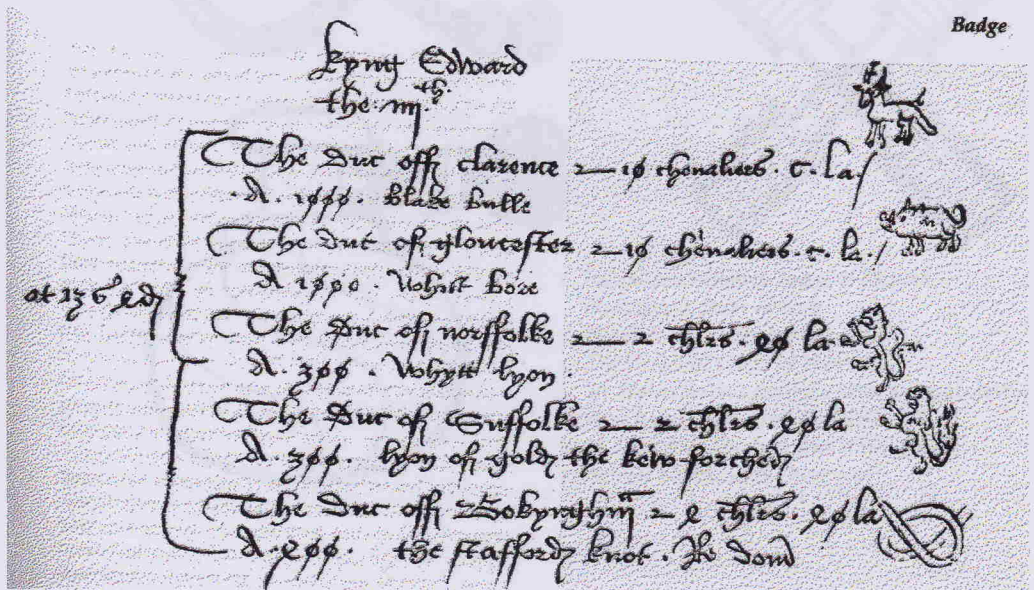 Badge
kyng Edward
the iiij th.
The Duc off clarence 2 — 10 chevaliers . C . la .
. A . 1000 . Blake bulle
The duc off gloucester 2 — 10 chevaliers . c . la .
A 1000 . Whitt bore
at 13 s
The Duc off norffolke 2 — 2 chlrs . 40 la
A . 300 . Whytt lyon .
The Duc off Suffolke 2 — 2 chlrs . 40 la
A . 300 . lyon off gold the kew forched
The Duc off Bokyngham 2 chlrs . 40 la
A . 400 . the stafford knot . Re dom